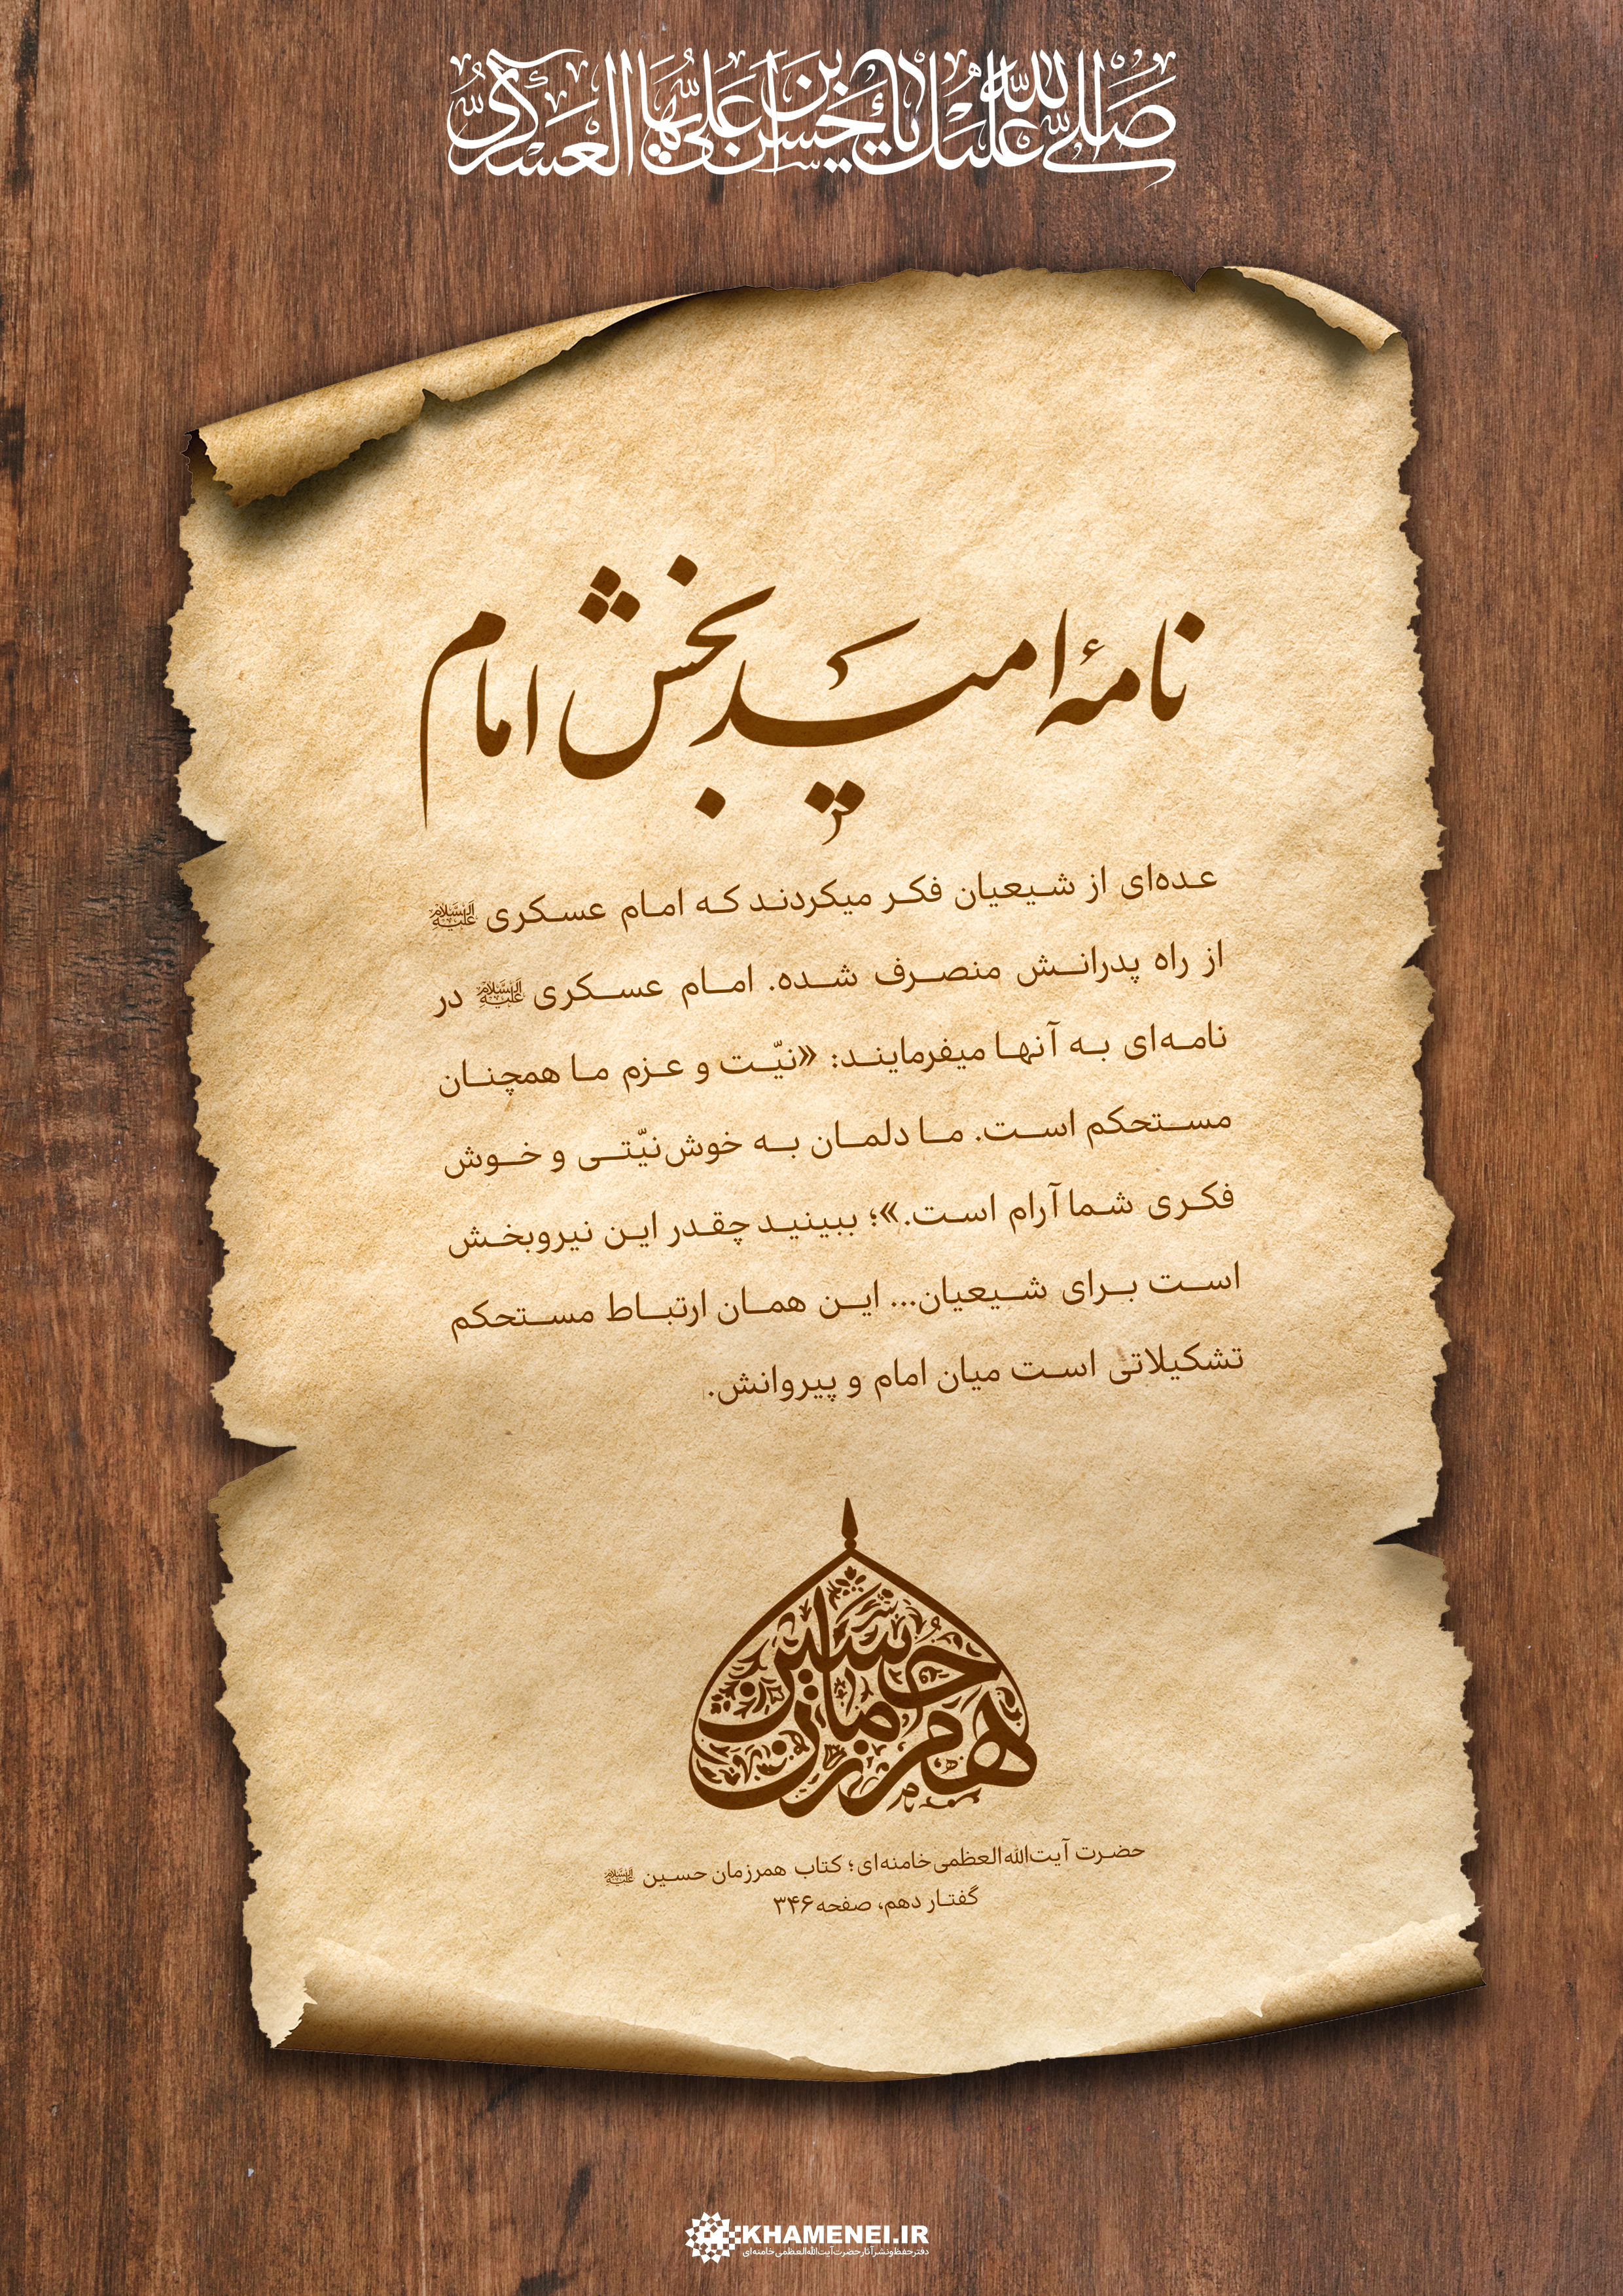 صَلَّی اللهُ عَلَیْكَ یا حَسَنَ بنَ عَلِيٍّ أَیُّهَا العَسکَريُّ
نامهٔ امیدبخش امام
عده‌ای از شیعیان فکر میکردند که امام عسکری علیه‌السلام
از راه پدرانش منصرف شده. امام عسکری علیه‌السلام در
نامه‌ای به آنها میفرمایند: «نیّت و عزم ما همچنان
مستحکم است. ما دلمان به خوش‌نیّتی و خوش
فکری شما آرام است.»؛ ببینید چقدر این نیروبخش
است برای شیعیان... این همان ارتباط مستحکم
تشکیلاتی است میان امام و پیروانش.
همرزمان حسین
حضرت آیت‌الله‌العظمی خامنه‌ای؛ کتاب همرزمان حسین علیه‌السلام
گفتار دهم، صفحه ۳۴۶
KHAMENEI.IR
دفتر حفظ و نشر آثار حضرت آیت‌الله‌العظمی خامنه‌ای